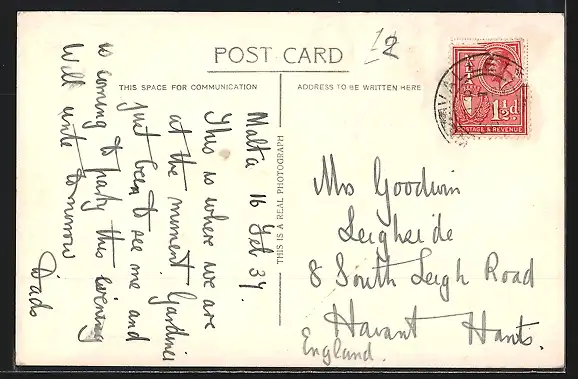 POST CARD
12
THIS SPACE FOR COMMUNICATION
ADDRESS TO BE WRITTEN HERE
Malta 16 Feb 37.
This is where we are
at the moment Gardiner
just been to see me and
is coming to party this evening
Will write tomorrow
Dads
THIS IS A REAL PHOTOGRAPH
VALLETTA
1½d.
POSTAGE & REVENUE
Mrs Goodwin
Leigheide
8 South Leigh Road
Havant Hants.
England.